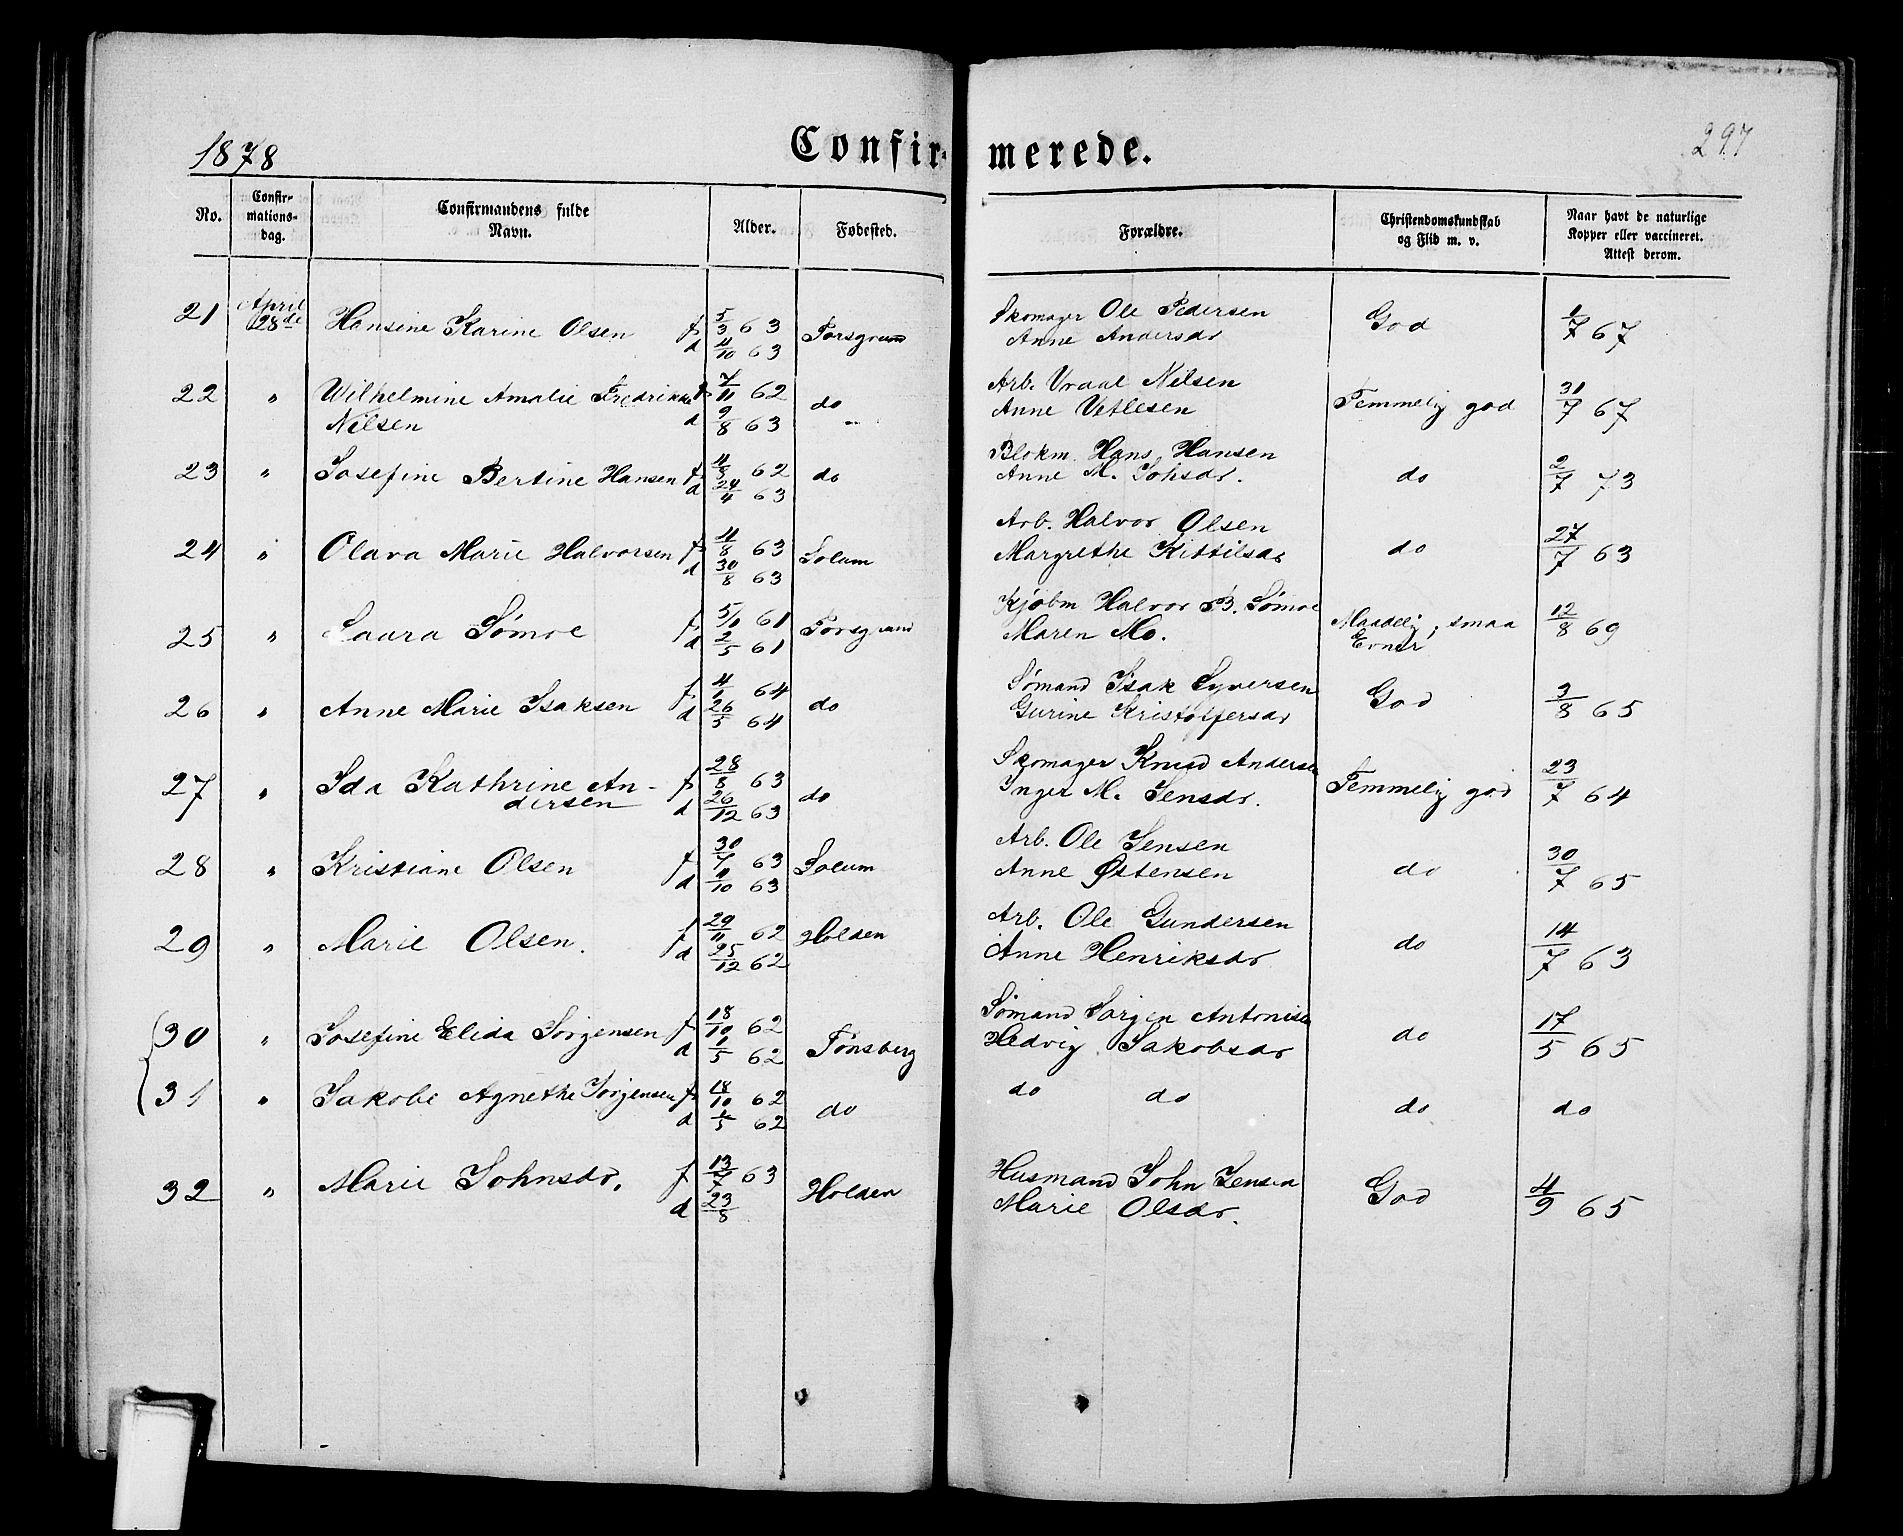 1878
Confirmerede.
297
No.
Confir-
mations-
dag.
Confirmandens fulde
Navn.
Alder.
Fødested.
Forældre.
Christendomskundskab
og Flid m. v.
Naar havt de naturlige
Kopper eller vaccineret.
Attest derom.
21 April 28de Hansine Karine Olsen f 5/3 63 Porsgrund Skomager Ole Pedersen God 1/7 67
d 4/10 63 Anne Andersdr
22 " Wilhelmine Amalie Fredrikke f 7/11 62 do Arb. Vraal Nilsen Temmelig god 31/7 67
Nilsen d 9/8 63 Anne Vetlesen
23 " Josefine Bertine Hansen f 62 do Blokm. Hans Hansen do 2/7 73
d 24/4 63 Anne M. Johsdr.
24 " Olava Marie Halvorsen f 4/8 63 Solum Arb. Halvor Olsen do 27/7 63
d 30/8 63 Margrethe Kittilsdr
25 " Laura Sømoe f 5/10 61 Porsgrund Kjøbm Halvor B. Sømoe Maadelig, smaa 12/8 69
d 2/5 61 Maren Mo. Evner
26 " Anne Marie Isaksen f 4/1 64 do Sømand Isak Syversen God 3/8 65
d 26/5 64 Gurine Kristoffersdr
27 " Ida Kathrine An- f 28/8 63 do Skomager Knud Andersen Temmelig god 23/7 64
dersen d 26/12 63 Inger M. Jensdr.
28 " Kristiane Olsen f 30/7 63 Solum Arb. Ole Jensen do 30/7 65
d 11/10 63 Anne Østensen
29 " Marie Olsen. f 29/11 62 Holden Arb. Ole Gundersen do 14/7 63
d 25/12 62 Anne Henriksdr
30 " Josefine Elida Jørgensen f 18/10 62 Tønsberg Sømand Jørgen Antonisen do 17/5 65
d 1/5 62 Hedvig Jakobsdr
31 " Jakobe Agnethe Jørgensen f 18/10 62 do do do do do
d 1/5 62
32 " Marie Johnsdr. f 13/7 63 Holden Husmand John Jensen God 4/9 65
d 23/8 Marie Olsdr.